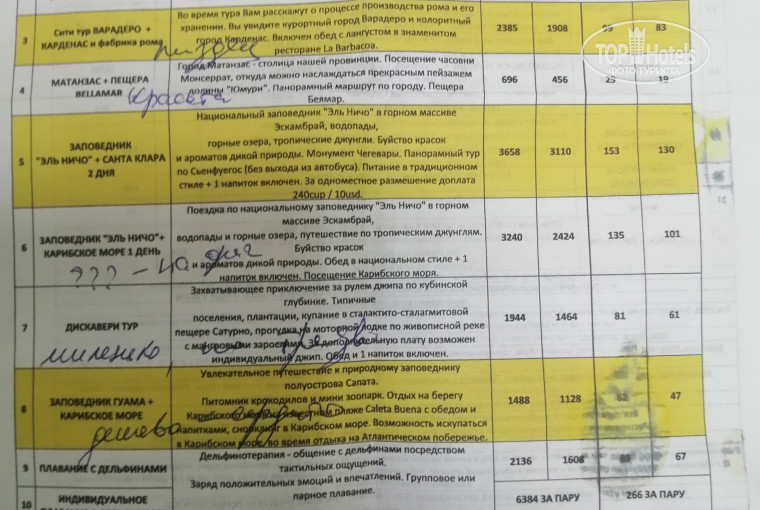 Во время тура Вам расскажут о процессе производства рома и его
3 Сити тур ВАРАДЕРО + КАРДЕНАС и фабрика рома
хранении. Вы увидите курортный город Варадеро и колоритный
город Карденас. Включен обед с лангустом в знаменитом
ресторане La Barbacoa.
2385 1908 99 83
TOP Hotels
ФОТО ТУРИСТА
4 МАТАНЗАС + ПЕЩЕРА BELLAMAR
красота
Город Матанзас - столица нашей провинции. Посещение часовни
Монсеррат, откуда можно наслаждаться прекрасным пейзажем
долины "Юмури". Панорамный маршрут по городу. Пещера
Беямар.
696 456 19
5 ЗАПОВЕДНИК
"ЭЛЬ НИЧО" + САНТА КЛАРА
2 ДНЯ
Национальный заповедник "Эль Ничо" в горном массиве
Эскамбрай, водопады,
горные озера, тропические джунгли. Буйство красок
и ароматов дикой природы. Монумент Чегевары. Панорамный тур
по Сьенфуегос (без выхода из автобуса). Питание в традиционном
стиле + 1 напиток включен. За одноместное размешение доплата
240cup / 10usd.
3658 3110 153 130
6 ЗАПОВЕДНИК "ЭЛЬ НИЧО"+
КАРИБСКОЕ МОРЕ 1 ДЕНЬ
???
Поездка по национальному заповеднику "Эль Ничо" в горном
массиве Эскамбрай,
водопады и горные озера, путешествие по тропическим джунглям.
Буйство красок
и ароматов дикой природы. Обед в национальном стиле + 1
напиток включен. Посещение Карибского моря.
3240 2424 135 101
7 ДИСКАВЕРИ ТУР
Захватывающее приключение за рулем джипа по кубинской
глубинке. Типичные
поселения, плантации, купание в сталактито-сталагмитовой
пещере Сатурно, прогулка на моторной лодке по живописной реке
с мангровыми зарослями. За дополнительную плату возможен
индивидуальный джип. Обед и 1 напиток включен.
1944 1464 81 61
8 ЗАПОВЕДНИК ГУАМА +
КАРИБСКОЕ МОРЕ
дешево
Увлекательное путешествие к природному заповеднику
полуострова Сапата.
Питомник крокодилов и мини зоопарк. Отдых на берегу
Карибского моря на известном пляже Caleta Buena с обедом и
напитками, снорклинг в Карибском море. Возможность искупаться
в Карибском море, во время отдыха на Атлантическом побережье.
1488 1128 62 47
9 ПЛАВАНИЕ С ДЕЛЬФИНАМИ
Дельфинотерапия - общение с дельфинами посредством
тактильных ощущений.
2136 1608 89 67
10 ИНДИВИДУАЛЬНОЕ
Заряд положительных эмоций и впечатлений. Групповое или
парное плавание.
6384 ЗА ПАРУ 266 ЗА ПАРУ